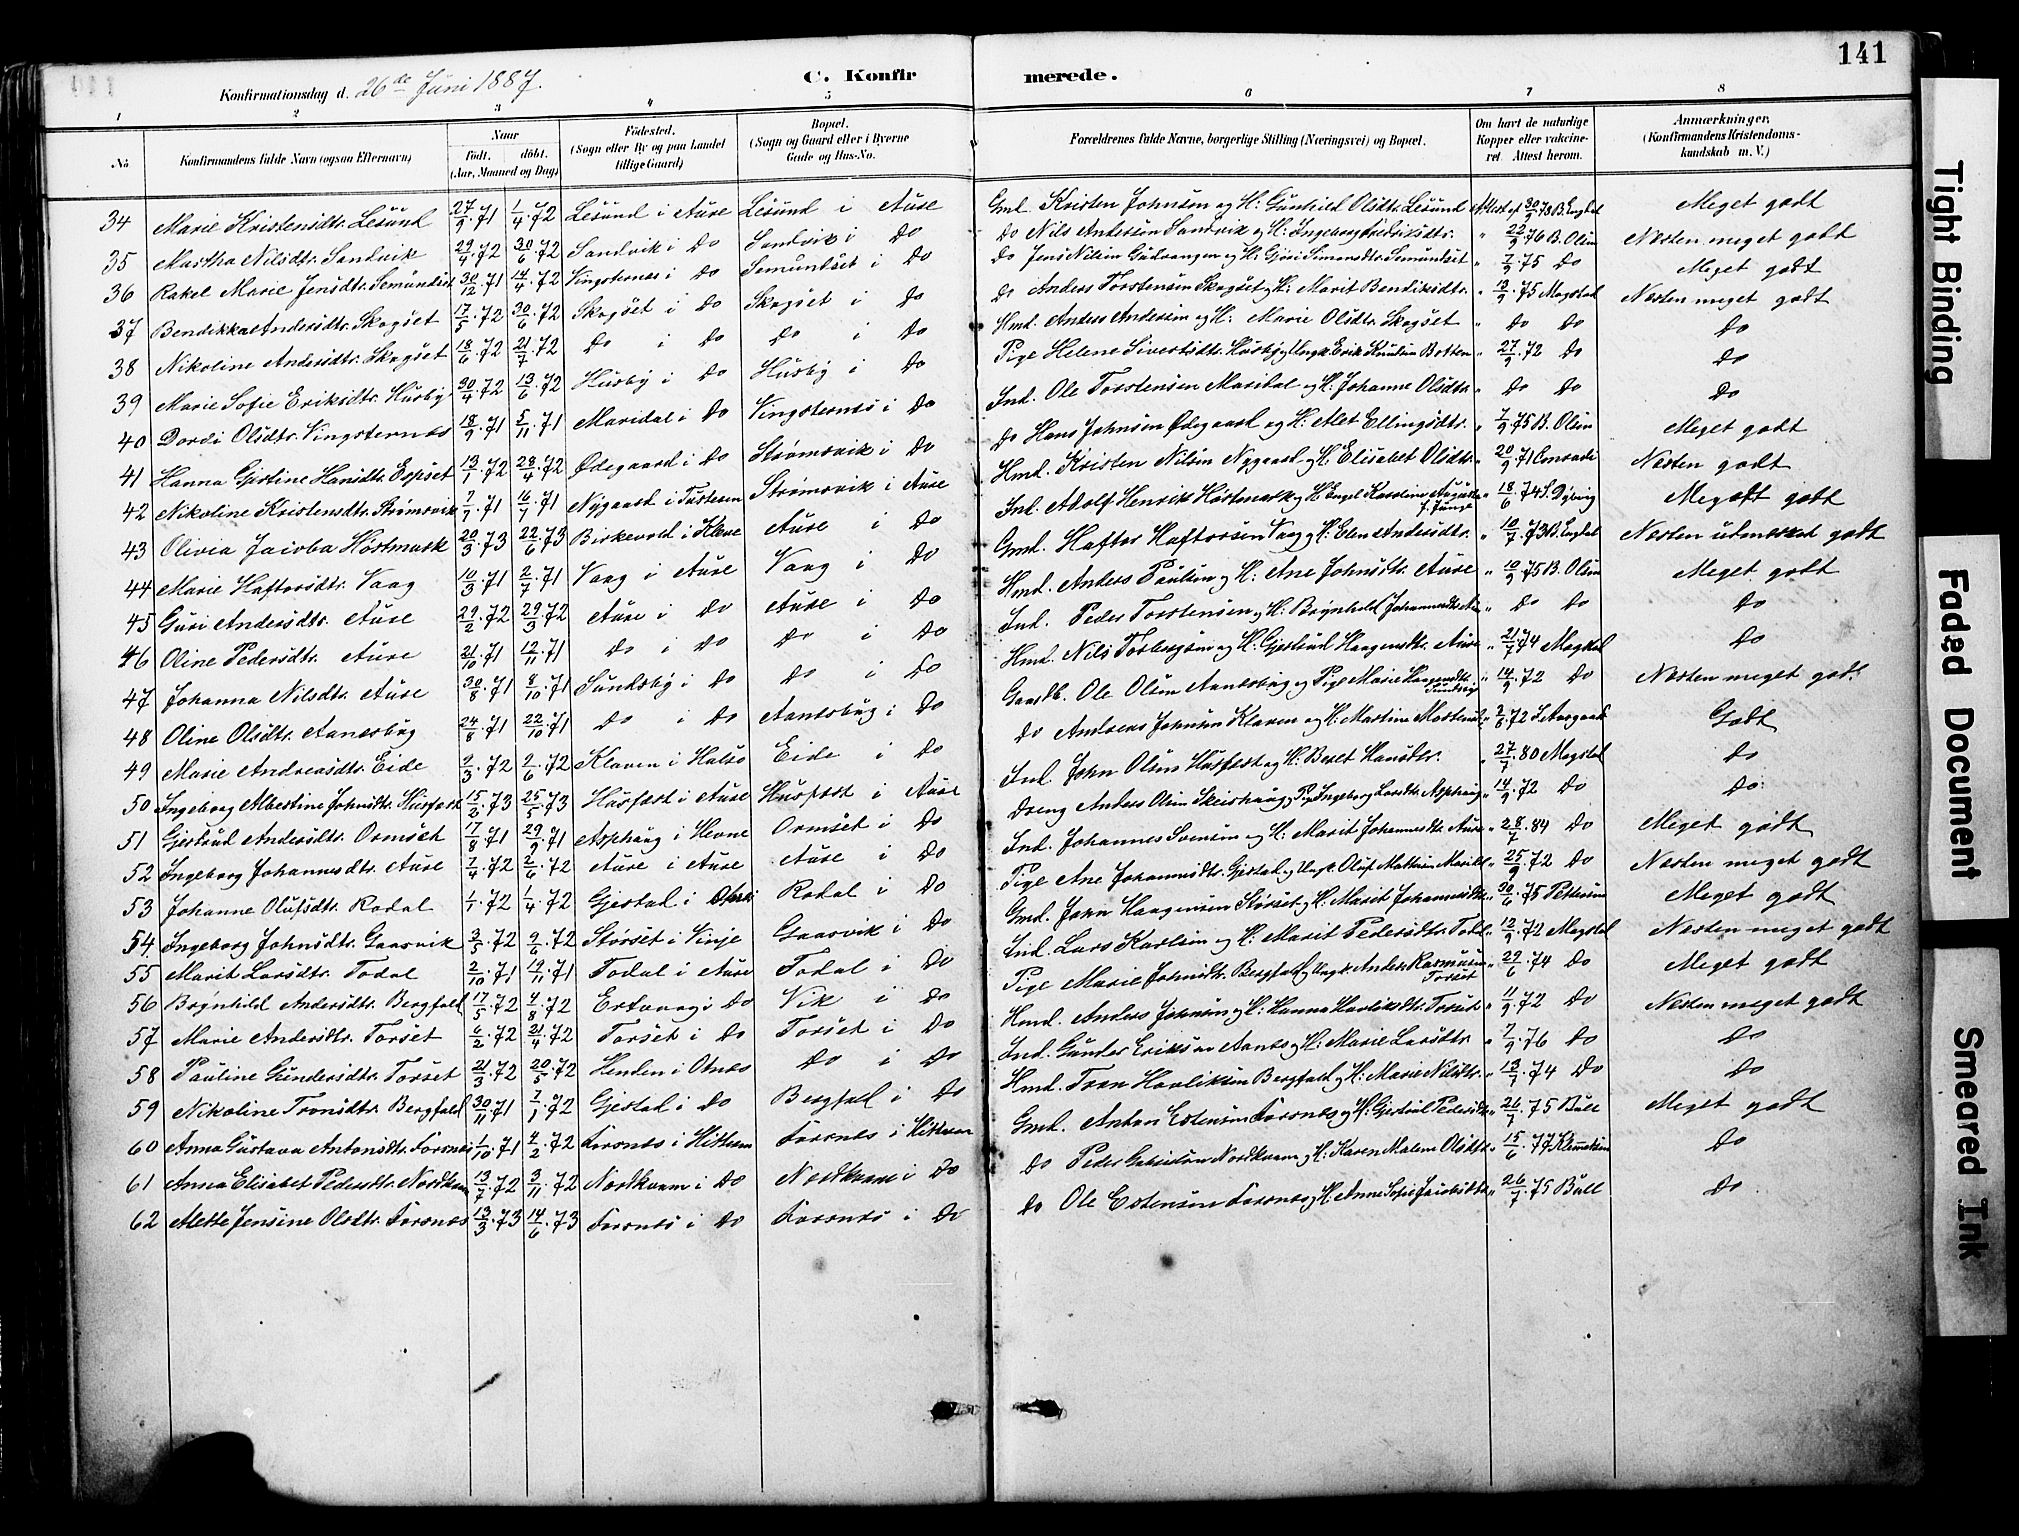 141
Konfirmationsdag d. 26de Juni 1887.
C. Konfirmerede.
1 2 3 4 5 6 7 8
No
Konfirmandens fulde Navn (ogsaa Efternavn)
Naar
født. døbt.
(Aar, Maaned og Dag)
Fødested.
(Sogn eller By og paa Landet
tillige Gaard)
Bopæl.
(Sogn og Gaard eller i Byerne
Gade og Hus-No.
Forældrenes fulde Navne, borgerlige Stilling (Næringsvei) og Bopæl.
Om havt de naturlige
Kopper eller vakcine-
ret Attest herom.
Anmærkninger,
(Konfirmandens Kristendoms-
kundskab m. V.)
34 Marie Kristensdtr. Lesund 27/9.71 1/4.72 Lesund i Aure Lesund i Aure Gmd. Kristen Johnsen og H: Gunhild Olsdtr. Lesund Attest af 30/9.73 B. Engdal Meget godt
35 Martha Nilsdtr. Sandvik 29/4.72 30/6.72 Sandvik i Do Sandvik i Do Do Nils Andersen Sandvik og H: Ingeborg Fredriksdtr. " 22/9.76 B. Olsen Næsten meget godt
36 Rakel Marie Jensdtr. Semundset 30/12.71 14/4.72 Vingsternes i Do Semundset i Do Do Jens Nilsen Gudvangen og H: Gjøri Simonsdtr. Semundset " 7/9.75 Do Meget godt
37 Bendikka Andersdtr. Skogset 17/5.72 30/6.72 Skogset i Do Skogset i Do Do Anders Torstensen Skogset og H: Marit Bendiksdtr. " 13/9.75 Mogstad Næsten meget godt
38 Nikoline Andersdtr. Skogset 18/6.72 21/7.72 Do i Do Do i Do Hmd. Anders Andersen og H: Marie Olsdtr. Skogset " Do Do Do
39 Marie Sofie Eriksdtr. Husby 30/4.72 13/6.72 Husby i Do Husby i Do Pige Helene Sivertsdtr. Husby og Ungk. Erik Knutsen Botten " 27/9.72 Do Do
40 Dordi Olsdtr. Vingsternes 18/9.71 5/11.71 Maridal i Do Vingsternes i Do Ind. Ole Torstensen Maridal og H: Johanne Olsdtr. " Do Do Do
41 Hanna Gjertine Hansdtr. Espset 13/1.72 28/4.72 Ødegaard i Do Strømsvik i Do Do Hans Johnsen Ødegaard og H: Alet Ellingsdtr. " 7/9.75 B. Olsen Meget godt
42 Nikoline Kristensdtr. Strømsvik 7/7.71 16/7.71 Nygaard i Tusteren Strømsvik i Aure Hmd. Kristen Nilsen Nygaard og H: Elisabet Olsdtr. " 20/9.71 Conradi Næsten godt
43 Olivia Jacoba Høstmark 20/3.73 22/6.73 Birkevold i Kleve Aure i Do Ind. Adolf Henrik Høstmark og H: Engel Karoline Augusta f. Junge " 18/6.74 S. Dybing Meget godt
44 Marie Haftorsdtr. Vaag 10/3.71 2/7.71 Vaag i Aure Vaag i Do Gmd. Haftor Haftorsen Vaag og H: Elen Andersdtr. " 10/7.73 B. Engdal Næsten udmærket godt
45 Guri Andersdtr. Aure 29/2.72 29/3.72 Aure i Do Aure i Do Hmd. Anders Paulsen og H: Ane Johnsdtr. Aure " 10/9.75 B. Olsen Meget godt
46 Oline Pedersdtr. Aure 21/10.71 12/11.71 Do i Do Do i Do Ind. Peder Torstensen og H: Brynhild Johannesdtr. Aure " Do Do Do
47 Johanna Nilsdtr. Aure 30/8.71 8/10.71 Sundsby i Do Do i Do Hmd. Nils Torbergsen og H: Gjertrud Haagensdtr. Aure " 21/7.74 Mogstad Do
48 Oline Olsdtr. Aanesbug 24/8.71 22/10.71 Do i Do Aanesbug i Do Gaardb. Ole Olsen Aanesbug og Pige Marie Haagensdtr. Sundsby " 14/9.72 Do Næsten meget godt
49 Marie Andreasdtr. Eide 2/3.72 2/6.72 Klaven i Halso Eide i Do Do Andreas Johnsen Klaven og H: Martine Mortensd. " 2/8.72 S. Aasgaard Godt
50 Ingeborg Albertine Johnsdtr. Husfest 15/2.73 25/5.73 Husfest i Aure Husfest i Aure Ind. John Olsen Husfest og H: Beret Hansdtr. " 27/4.80 Mogstad Do
51 Gjertrud Andersdtr. Ormset 17/8.71 29/9.71 Asphaug i Hevne Ormset i Do Dreng Anders Olsen Skeishaug og Pige Ingeborg Larsdtr. Asphaug " 14/9.72 Do Do.
52 Ingeborg Johannesdtr. Aure 7/4.72 2/6.72 Aure i Aure Aure i Do Ind. Johannes Svensen og H: Marit Johannesdtr. Aure " 28/7.84 Do Meget godt
53 Johanne Olufsdtr. Rodal 1/1.72 1/4.72 Gjestad i Rodal i Do Pige Ane Johannesdtr. Gjestad og Ungk. Oluf " 25/9.72 Do Næsten meget godt
54. Ingeborg Johnsdtr. Gaasvik 3/5.72 9/6.72 Størset i Vinje Gaasvik i Do Gmd. John Haagensen Størset og H: Marit Johannesdtr. " 30/6.75 Pettersen Meget godt
55 Marit Larsdtr. Todal 2/10.71 19/11.71 Todal i Aure Todal i Do Ind. Lars Karlsen og H: Marit Pedersdtr. Todal " 12/9.72 Mogstad Næsten meget godt
56 Brynhild Andersdtr. Bergfald 17/5.72 4/8.72 Ertvaag i Do Vik i Do Pige Marie Johnsdtr. Bergfald og Ungk. Anders Rasmusen Torset " 29/6.74 Do Meget godt
57 Marie Andersdtr. Torset 6/2.72 21/4.72 Torset i Do Torset i Do Hmd. Anders Johnsen og H: Hanna Havliksdtr. Torset " 11/9.72 Do Næsten meget godt
58 Pauline Gundersdtr. Torset 21/3.72 20/5.72 Henden i Otnes Do i Do Ind. Gunder Eriksen Aanes og H: Marie Larsdtr. " 7/9.76 Do Do
59 Nikoline Tronsdtr. Bergfald 30/11.71 7/1.72 Gjestad i Do Bergfald i Do Hmd. Tron Havliksen Bergfald og H: Marie Nilsdtr. " 13/7.74 Do Do
60 Anna Gustava Antonsdtr. Forsnes 1/10.71 4/2.72 Forsnes i Hitteren Forsnes i Hitteren Gmd. Anton Estensen Forsnes og H: Gjertrud Pedersdtr. " 26/7.75 Bull Meget godt
61 Anna Elisabet Pedersdtr. Nordkvam 13/7.72 3/11.72 Nordkvam i Do Nordkvam i Do Do Peder Gabrielsen Nordkvam og H: Karen Malene Olsdtr. " 15/6.77 Klemetsen Do
62 Alette Jensine Olsdtr. Forsnes 13/3.73 14/6.73 Forsnes i Do Forsnes i Do Do Ole Estensen Forsnes og H: Anne Sofie Jacobsdtr. " 26/7.75 Bull Do
Tight Binding
Faded Document
Smeared Ink